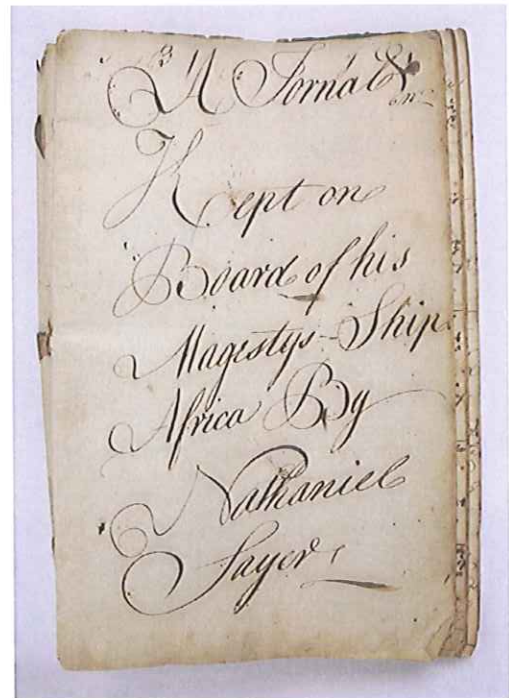 A Jornal
Kept on
Board of his
Magestys Ship
Africa By
Nathaniel
Sayer